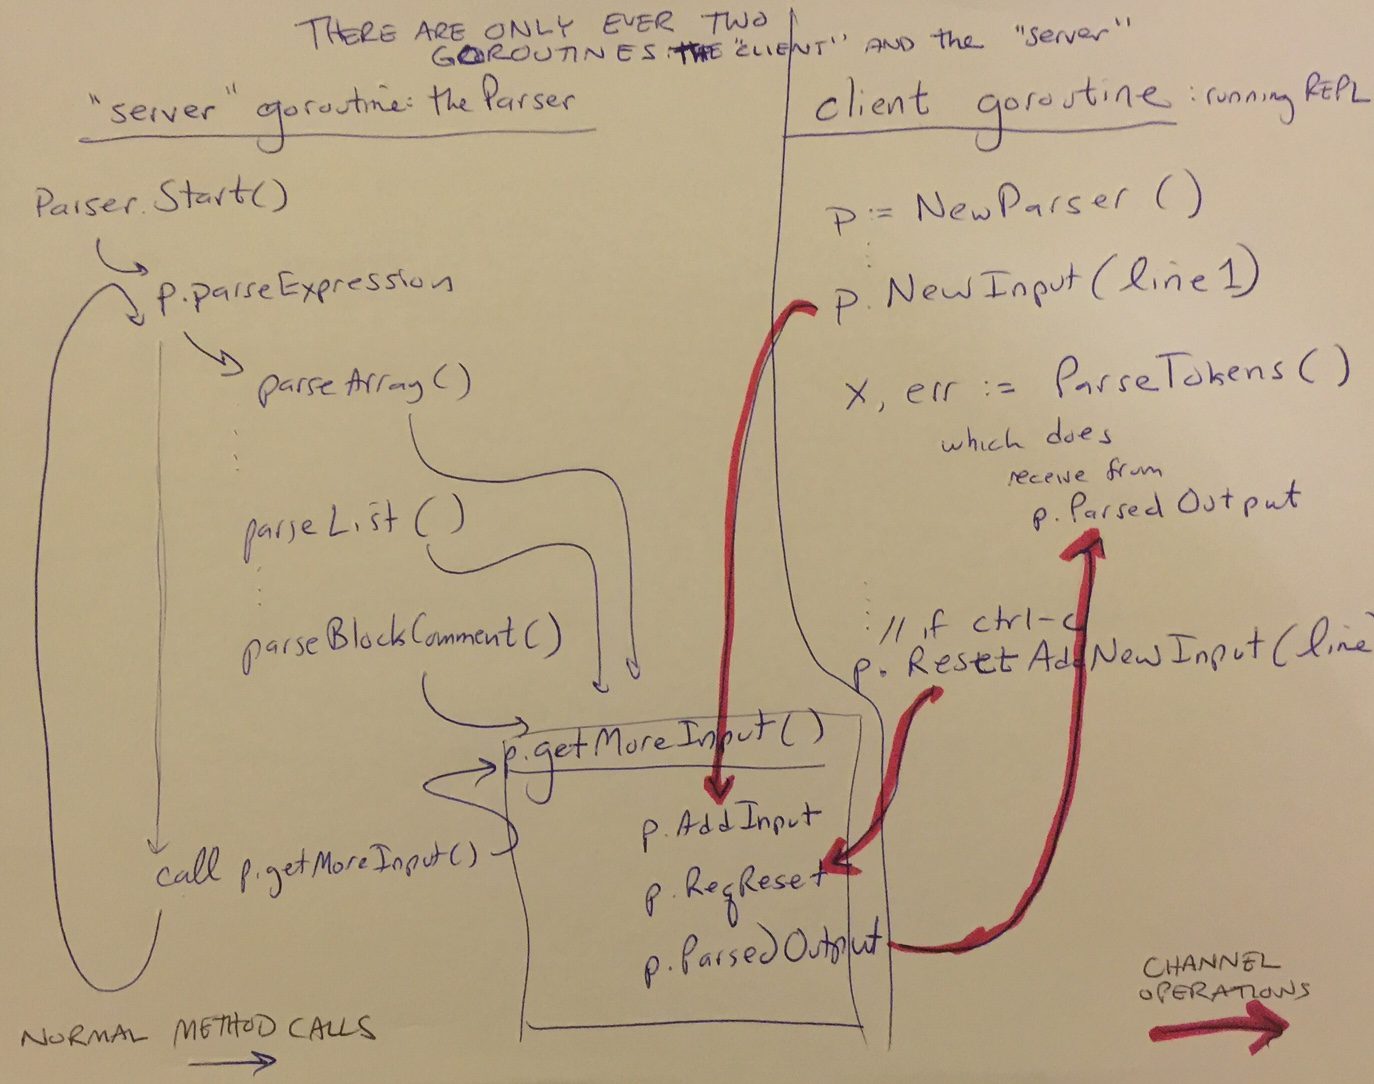 THERE ARE ONLY EVER TWO
GOROUTINES: THE "CLIENT" AND the "server"
"server" goroutine: the Parser
Parser.Start()
p.parseExpression
parseArray()
parseList()
parseBlockComment()
p.getMoreInput()
p.AddInput
call p.getMoreInput()
p.ReqReset
p.ParsedOutput
NORMAL METHOD CALLS
client goroutine : running REPL
p := NewParser()
p. NewInput(line1)
x, err := ParseTokens()
which does
receive from
p.ParsedOutput
// if ctrl-c
p. ResetAddNewInput(line
CHANNEL
OPERATIONS